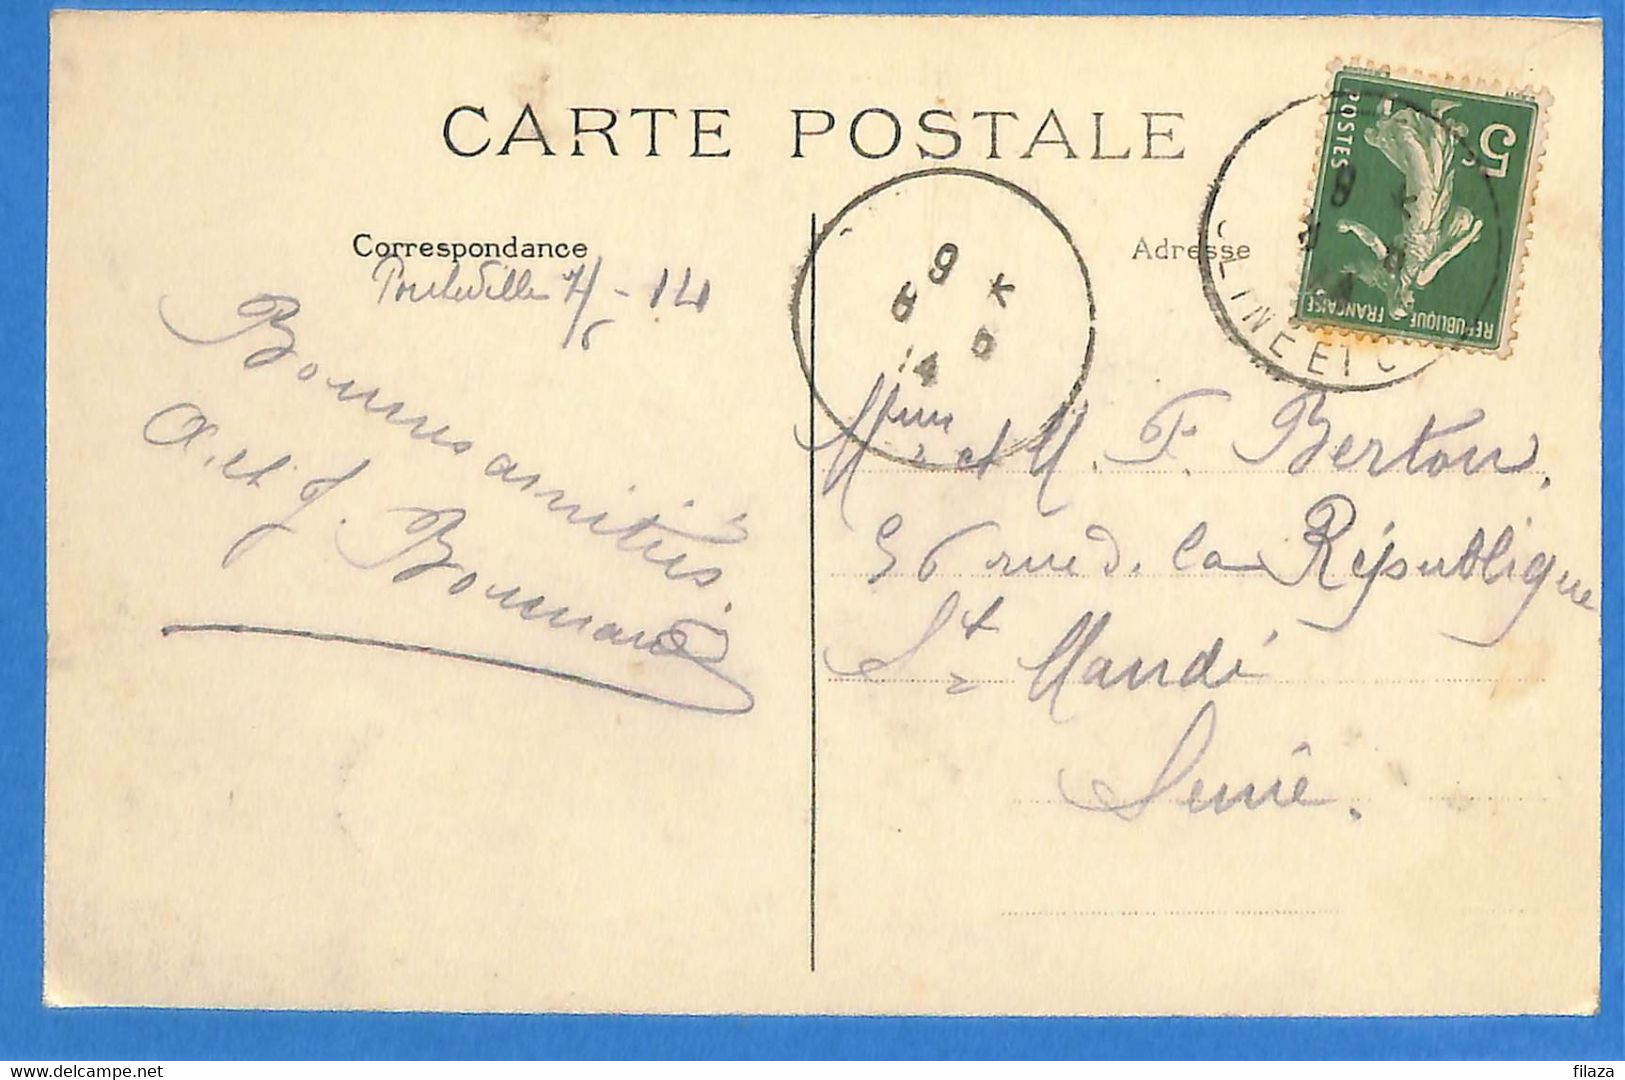 CARTE POSTALE
Correspondance
Adresse
7/5 - 14
Bonnes amitiés.
A. et J. Bonnard
Mme et M. F. Berton,
56 rue d. la République
St Mandé
Seine.
9 *
8 5
14
5c
POSTES
REPUBLIQUE FRANÇAISE
filaza